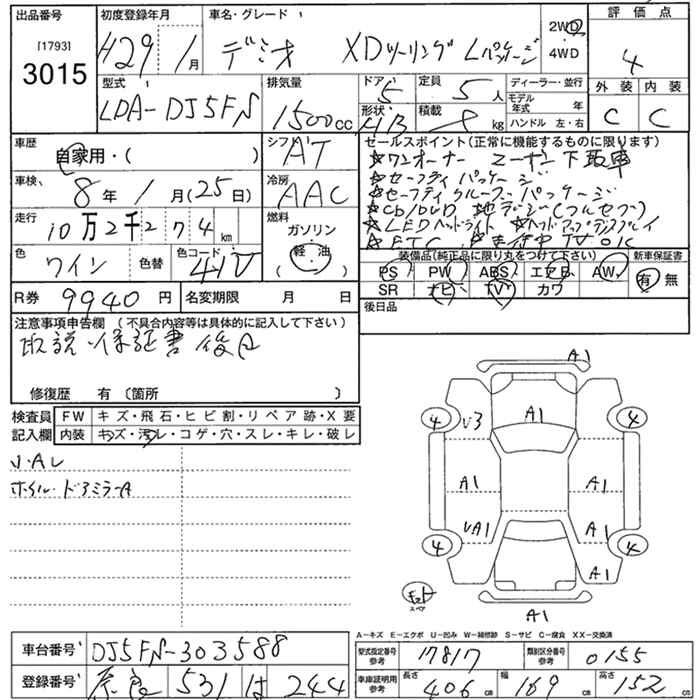 出品番号
[1793]
3015
初度登録年月
H29年1月
車名・グレード
デミオ XDツーリング Lパッケージ
2WD
4WD
評価点
4
外装 内装
C C
型式
LDA-DJ5FS
排気量
1500cc
ドア
5
形状
HB
定員
5人
積載
kg
ディーラー・並行
モデル年式 年
ハンドル 左・右
車歴
自家用・( )
シフト
AT
車検、
8年1月(25日)
冷房
AAC
走行
10万2千274km
燃料
ガソリン
軽油
色
ワイン
色替
色コード
41V
R券 9940円
名変期限 月 日
セールスポイント(正常に機能するものに限ります)
★ワンオーナー ユーザー下取車
★セーフティパッケージ
★セーフティクルーズパッケージ
★CD/DVD 地デジ(フルセグ)
★LEDヘッドライト ★ヘッドアップディスプレイ
★ETC ★走行中TV OK
装備品(純正品に限り丸をつけて下さい)
PS PW ABS エアB AW
SR ナビ TV カワ
新車保証書
有・無
後日品
注意事項申告欄 (不具合内容等は具体的に記入して下さい)
取説・保証書 後日
修復歴 有 (箇所 )
検査員記入欄
FW キズ・飛石・ヒビ割・リペア跡・X要
内装 キズ・汚レ・コゲ・穴・スレ・キレ・破レ
ホイル・ドアミラーA
A1
4 U3 A1 4
A1 A1
UA1 A1
4 4
A1
スペア
A1
A-キズ E-エクボ U-凹み W-補修跡 S-サビ C-腐食 XX-交換済
車台番号 DJ5FS-303588
登録番号 奈良 531 は 244
型式指定番号参考 17817
類別区分番号参考 0155
車庫証明用参考 長さ 406cm 幅 169cm 高さ 152